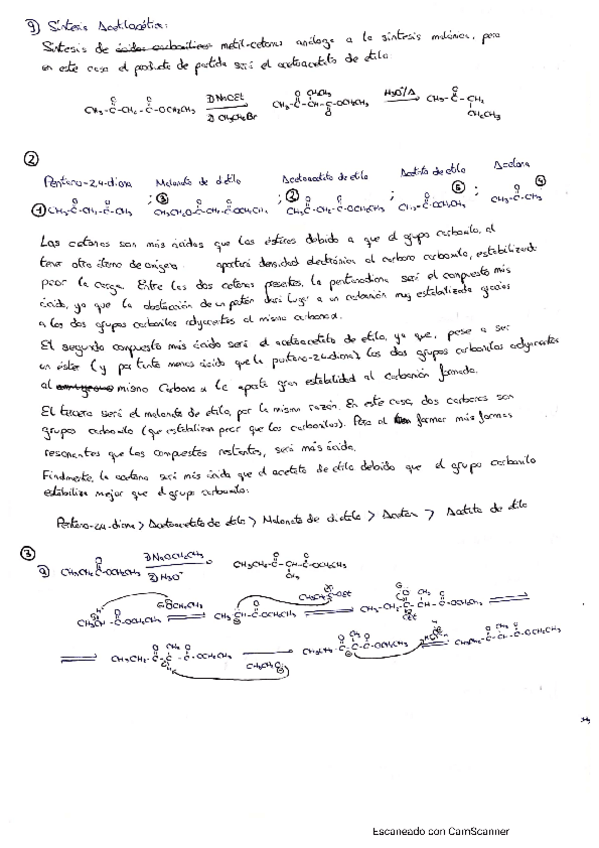 g) Síntesis Acetilacética:
Síntesis de ácidos carboxílicos metil-cetonas análoga a la síntesis malónica, pero
en este caso el producto de partida será el acetoacetato de etilo
CH3-C-CH2-C-OCH2CH3 1) NaOEt 2) CH3CH2Br CH3-C-CH-C-OCH2CH3 H3O+/Δ CH3-C-CH2
CH2CH3
②
Pentano-2,4-diona Malonato de dietilo Acetoacetato de etilo Acetato de etilo Acetona
① CH3-C-CH2-C-CH3 ; ③ CH3CH2O-C-CH2-C-OCH2CH3 ; ② CH3-C-CH2-C-OCH2CH3 ; ⑤ CH3-C-OCH2CH3 ; ④ CH3-C-CH3
Las cetonas son más ácidas que los ésteres debido a que el grupo carboxilo, al
tener otro átomo de oxígeno aportará densidad electrónica al carbono carbonilo, estabilizando
peor la carga. Entre las dos cetonas presentes, la pentanodiona será el compuesto más
ácido, ya que la abstracción de un protón dará lugar a un carbanión muy estabilizado gracias
a los dos grupos carbonilos adyacentes al mismo carbono α.
El segundo compuesto más ácido será el acetoacetato de etilo, ya que, pese a ser
un éster (y por tanto menos ácido que la pentano-2,4-diona) los dos grupos carbonilos adyacentes
al mismo carbono α le aporta gran estabilidad al carbanión formado.
El tercero será el malonato de etilo, por la misma razón. En este caso, dos carbonos son
grupos carboxilo (que estabilizan peor que los carbonilos). Pero al formar más formas
resonantes que los compuestos restantes, será más ácido.
Finalmente, la acetona será más ácida que el acetato de etilo debido que el grupo carbonilo
estabiliza mejor que el grupo carboxilo.
Pentano-2,4-diona > Acetoacetato de etilo > Malonato de dietilo > Acetona > Acetato de etilo
③
a) CH3CH2-C-OCH2CH3 1) NaOCH2CH3 2) H3O+ CH3CH2-C-CH-C-OCH2CH3
CH3
Escaneado con CamScanner